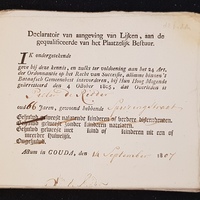 Declaratoir van aangeving van Lijken, aan de
gequalificeerde van het Plaatzelijk Bestuur.
IK ondergetekende
geve bij deze kennis, en zulks ter voldoening aan het 24 Art.
der Ordonnantie op het Recht van Successie, alomme binnen 't
Bataafsch Gemeenebest intevoederen, bij Hun Hoog Mogende
gearresteerd den 4 October 1805, dat Overleden is
Pieter de Ridder
oud 66 jaren, gewoond hebbende
kinderen of verdere
kinderen
Gehuwd geweest met kind of kinderen uit een of
meerder Huwelijk.
Ongehuwd.
Actum in GOUDA, den 14 September 1807